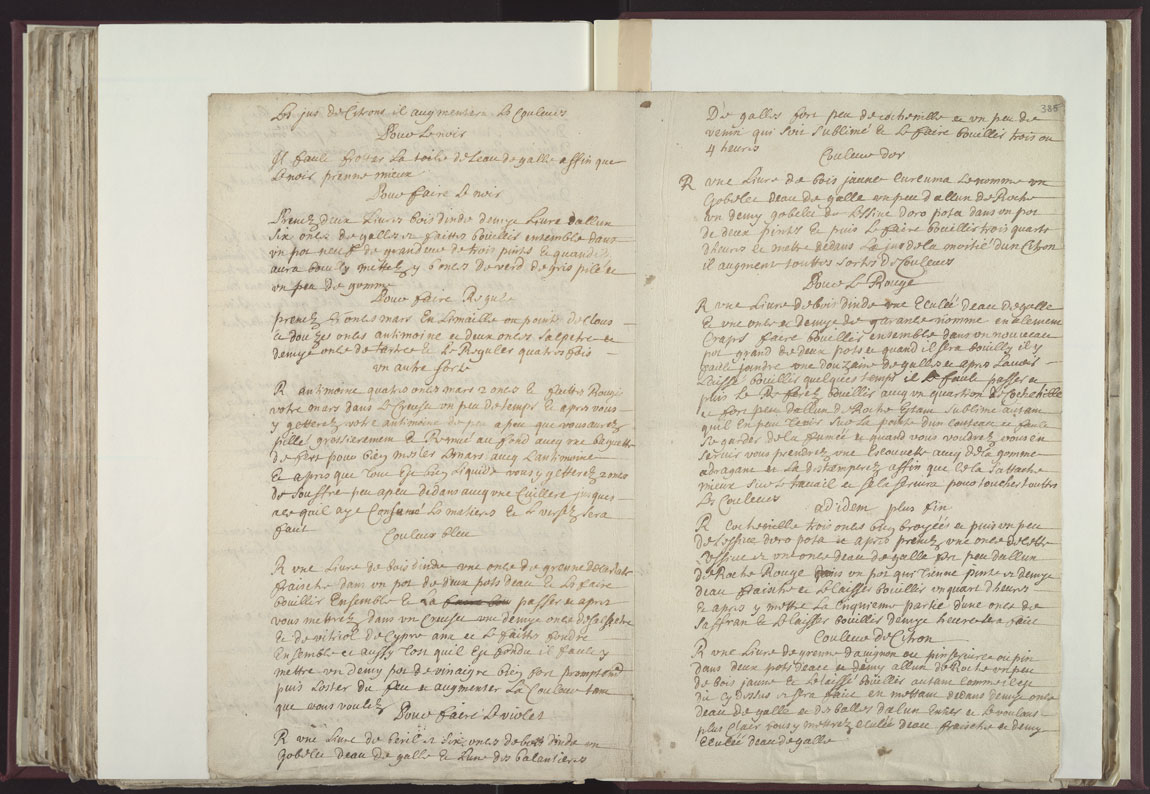 Les jus de Citrons il augmentera les Couleurs
Pour Le noir
Il fault froter La toille de Leau de galle affin que
Le noir prenne mieux
Pour faire Le noir
Prenez deux Livres bois dinde demye Livre dallun
six onces de galles et faittes bouillir ensemble dans
un pot neuf de grandeur de trois pints et quand il
aura bouilly mettez y 6 onces de verd de gris pilé et
un peu de gomme
Pour faire Regule
prenez onces mars En Limaille ou pointe de Clous
et douzes onces antimoine et deux onces salpetre et
demye once de tartre et Le Reguler quatres fois
un autre sorte
R antimoine quatre onces mars 2 onces et faittes Rougir
votre mars dans le Creuset un peu de temps et apres vous
y getterez votre antimoine peu a peu que vous aurez
pillé grossierement et Remué au fond avecq une baguette
de fert pour bien mesler Le mars avecq Lantimoine
Et apres que tout est bien Liquide vous y getterez 2 onces
de souffre peu apeu dedans avecq une Cuillere jusques
a ce quil aye Consumé les matieres et Le versez sera
faict
Couleur bleu
R une Livre de bois dinde une once de grenne
fraische dans un pot de deux pots deau et Le faire
bouillir Ensemble et La passer et apres
vous mettrez dans un Creuset une demye once de salpetre
et de vitriol de Cypre ana et Le faitte fondre
Ensemble et aussy tost quil Est fondu il fault y
mettre un demy pot de vinaigre bien fort promptemt
puis Loster du feu et augmenter La Couleur tant
que vous voulez
Pour faire Le violet
R une Livre de bresil et six onces de bois dinde un
gobelet deau de galle et Lune des balantieres
386
De galles fort peu de cochenille et un peu de
venin qui soit sublimé et Le faire bouillir trois ou
4 heures
Couleur dor
R une Livre de bois jaune Curcuma Le nomme un
gobelet deau de galle un peu dallun de Roche
un demy gobelet de Lessive doro pota dans un pot
de deux pints et puis Le faire bouillir trois quarts
dheures et mettre dedans Le jus de la mortié dun Citron
il augmente touttes sortes de Couleurs
Pour Le Rouge
R une Livre de bois dinde une Eculée deau de galle
et une once et demye de garance nommé en alement
Craps faire bouillir ensemble dans un nouveau
pot grand de deux pots et quand il sera bouilly il y
fault joindre une douzaine de galles et apres Lavoir
Laissé bouillir quelques temps il Le fault passer et
plus Le Referez bouillir avecq un quartron de Cochenille
et fort peu dallun de Roche Estam sublime autant
quil En peu tenir sur La pointe dun couteau et fault
se garder de la fumée et quand vous voudrez vous en
servir vous prendrez une Escouvette avecq de la gomme
adragant et La destamperez affin que Cela sattache
mieux sur Le travail et Cela servira pour touches touttes
Les Couleurs
ad idem plus fin
R Cochenille trois onces bien broyées et puis un peu
de Lessive doro pota et apres prenez une once de cette
Lessive et une once deau de galle un peu dallun
de Roche Rouge dans un pot qui Tienne pinte et demye
deau fraiche et Le laisser bouillir un quart dheures
et apres y mettre La Cinquieme partie dune once de
saffran et Le laisser bouillir demye heure sera faict
Couleur de Citron
R une Livre de grenne davignon ou
dans deux pots deau et demy allun de Roche un peu
de bois jaune et Le laisse bouillir autant Comme il est
dit Cy dessus et sera faict en mettant dedans demye once
deau de galle et de balles dalun Entres et Le voulant
plus Clair vous y mettrez eculée deau fraische et demy
Eculée deau de galle